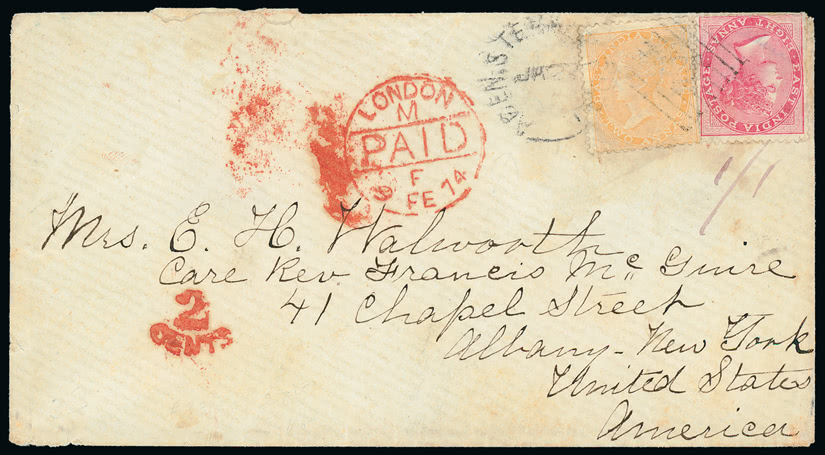 LONDON
M
PAID
9 F
FE 74
EAST INDIA POSTAGE
EIGHT ANNAS
1/1
Mrs. E. H. Walworth
Care Rev. Francis Mc Guire
41 Chapel Street
Albany - New York
United States
America
2
CENTS